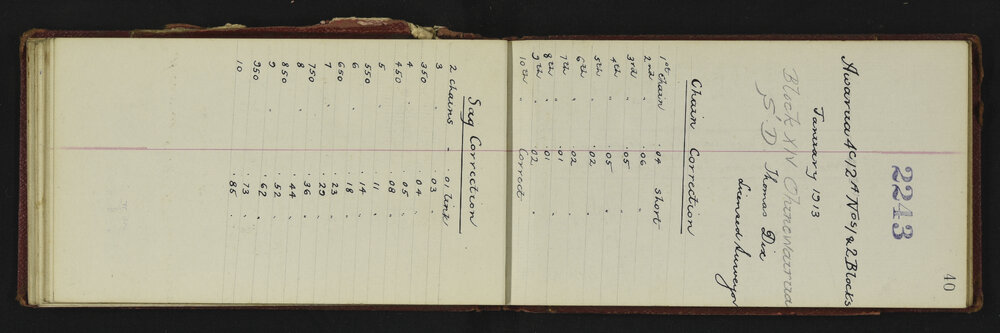 40
2243
Awarua 4C12A Nos 1 & 2 Blocks
January 1913
Block XIV Ohinewairua
S.D Thomas Dix
Licensed Surveyor
Chain Correction
1st chain .04 short
2nd " .06 "
3rd " .05 "
4th " .05 "
5th " .02 "
6th " .02 "
7th " .01 "
8th " .01 "
9th " .02 "
10th " Correct
Sag Correction
2 chains - .01 link
3 " .03 "
350 .04 "
4 " .05 "
450 .08 "
5 " .11 "
550 .14 "
6 " .18 "
650 .23 "
7 " .29 "
750 .36 "
8 " .44 "
850 .52 "
9 " .62 "
950 .73 "
10 .85 "